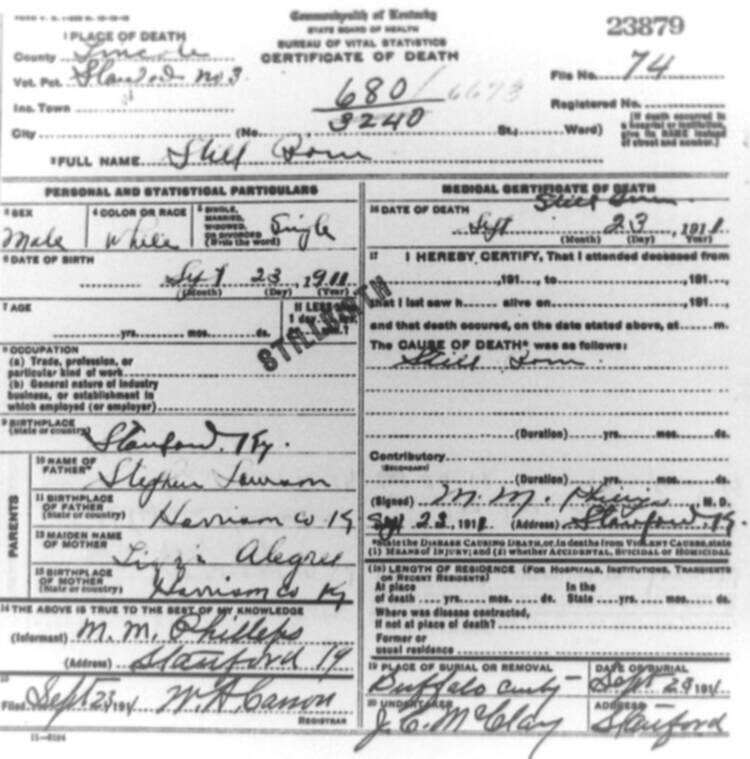 Commonwealth of Kentucky
STATE BOARD OF HEALTH
BUREAU OF VITAL STATISTICS
CERTIFICATE OF DEATH
23879
1 PLACE OF DEATH
County Lincoln
Vot. Pct. Stanford No 3
Inc. Town
City (No. St.; Ward)
680
3240
File No. 74
Registered No.
[If death occurred in a hospital or institution, give its NAME instead of street and number.]
2 FULL NAME Still Born
PERSONAL AND STATISTICAL PARTICULARS
3 SEX
Male
4 COLOR OR RACE
White
5 SINGLE, MARRIED, WIDOWED, OR DIVORCED (Write the word)
Single
6 DATE OF BIRTH
Sept 23 1911
(Month) (Day) (Year)
7 AGE
yrs. mos. ds.
STILLBIRTH
8 OCCUPATION
(a) Trade, profession, or
particular kind of work
(b) General nature of industry
business, or establishment in
which employed (or employer)
9 BIRTHPLACE
(State or country) Stanford, Ky.
PARENTS
10 NAME OF
FATHER Stephen Lawson
11 BIRTHPLACE
OF FATHER
(State or country) Harrison Co Ky
12 MAIDEN NAME
OF MOTHER Lizzie
13 BIRTHPLACE
OF MOTHER
(State or country) Harrison Co Ky
14 THE ABOVE IS TRUE TO THE BEST OF MY KNOWLEDGE
(Informant) M. M. Phillips
(Address) Stanford Ky
15
Filed Sept 23 1911
REGISTRAR
11-6184
MEDICAL CERTIFICATE OF DEATH
Still Born
16 DATE OF DEATH
Sept 23, 1911
(Month) (Day) (Year)
17 I HEREBY CERTIFY, That I attended deceased from
, 191 , to , 191 ,
that I last saw h alive on , 191 ,
and that death occured, on the date stated above, at m.
The CAUSE OF DEATH* was as follows:
Still Born
(Duration) yrs. mos. ds.
Contributory
(SECONDARY)
(Duration) yrs. mos. ds.
(Signed) M. M. Phillips M. D.
Sept 23, 1911 (Address) Stanford, Ky.
*State the DISEASE CAUSING DEATH, or, in deaths from VIOLENT CAUSES, state
(1) MEANS OF INJURY; and (2) whether ACCIDENTAL, SUICIDAL or HOMICIDAL
(18) LENGTH OF RESIDENCE (FOR HOSPITALS, INSTITUTIONS, TRANSIENTS
OR RECENT RESIDENTS)
At place In the
of death yrs. mos. ds. State yrs. mos. ds.
Where was disease contracted,
if not at place of death?
Former or
usual residence
19 PLACE OF BURIAL OR REMOVAL
Buffalo
DATE OF BURIAL
Sept 23 1911
20 UNDERTAKER
J. C. McClary
ADDRESS
Stanford